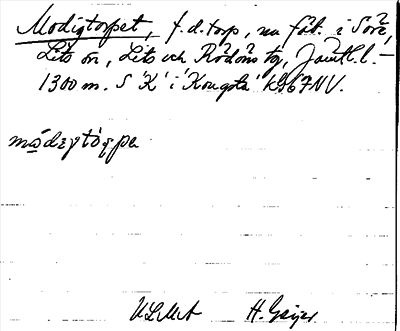 Modigtorpet, f.d. torp, nu fäb. i Söre,
Lits sn, Lits och Rödöns tg, Jämtl. l. –
1300 m. S 'K' i 'Kougsta' k 967 NV.
mɷdɛgtòrpa
ULMA H. Geijer